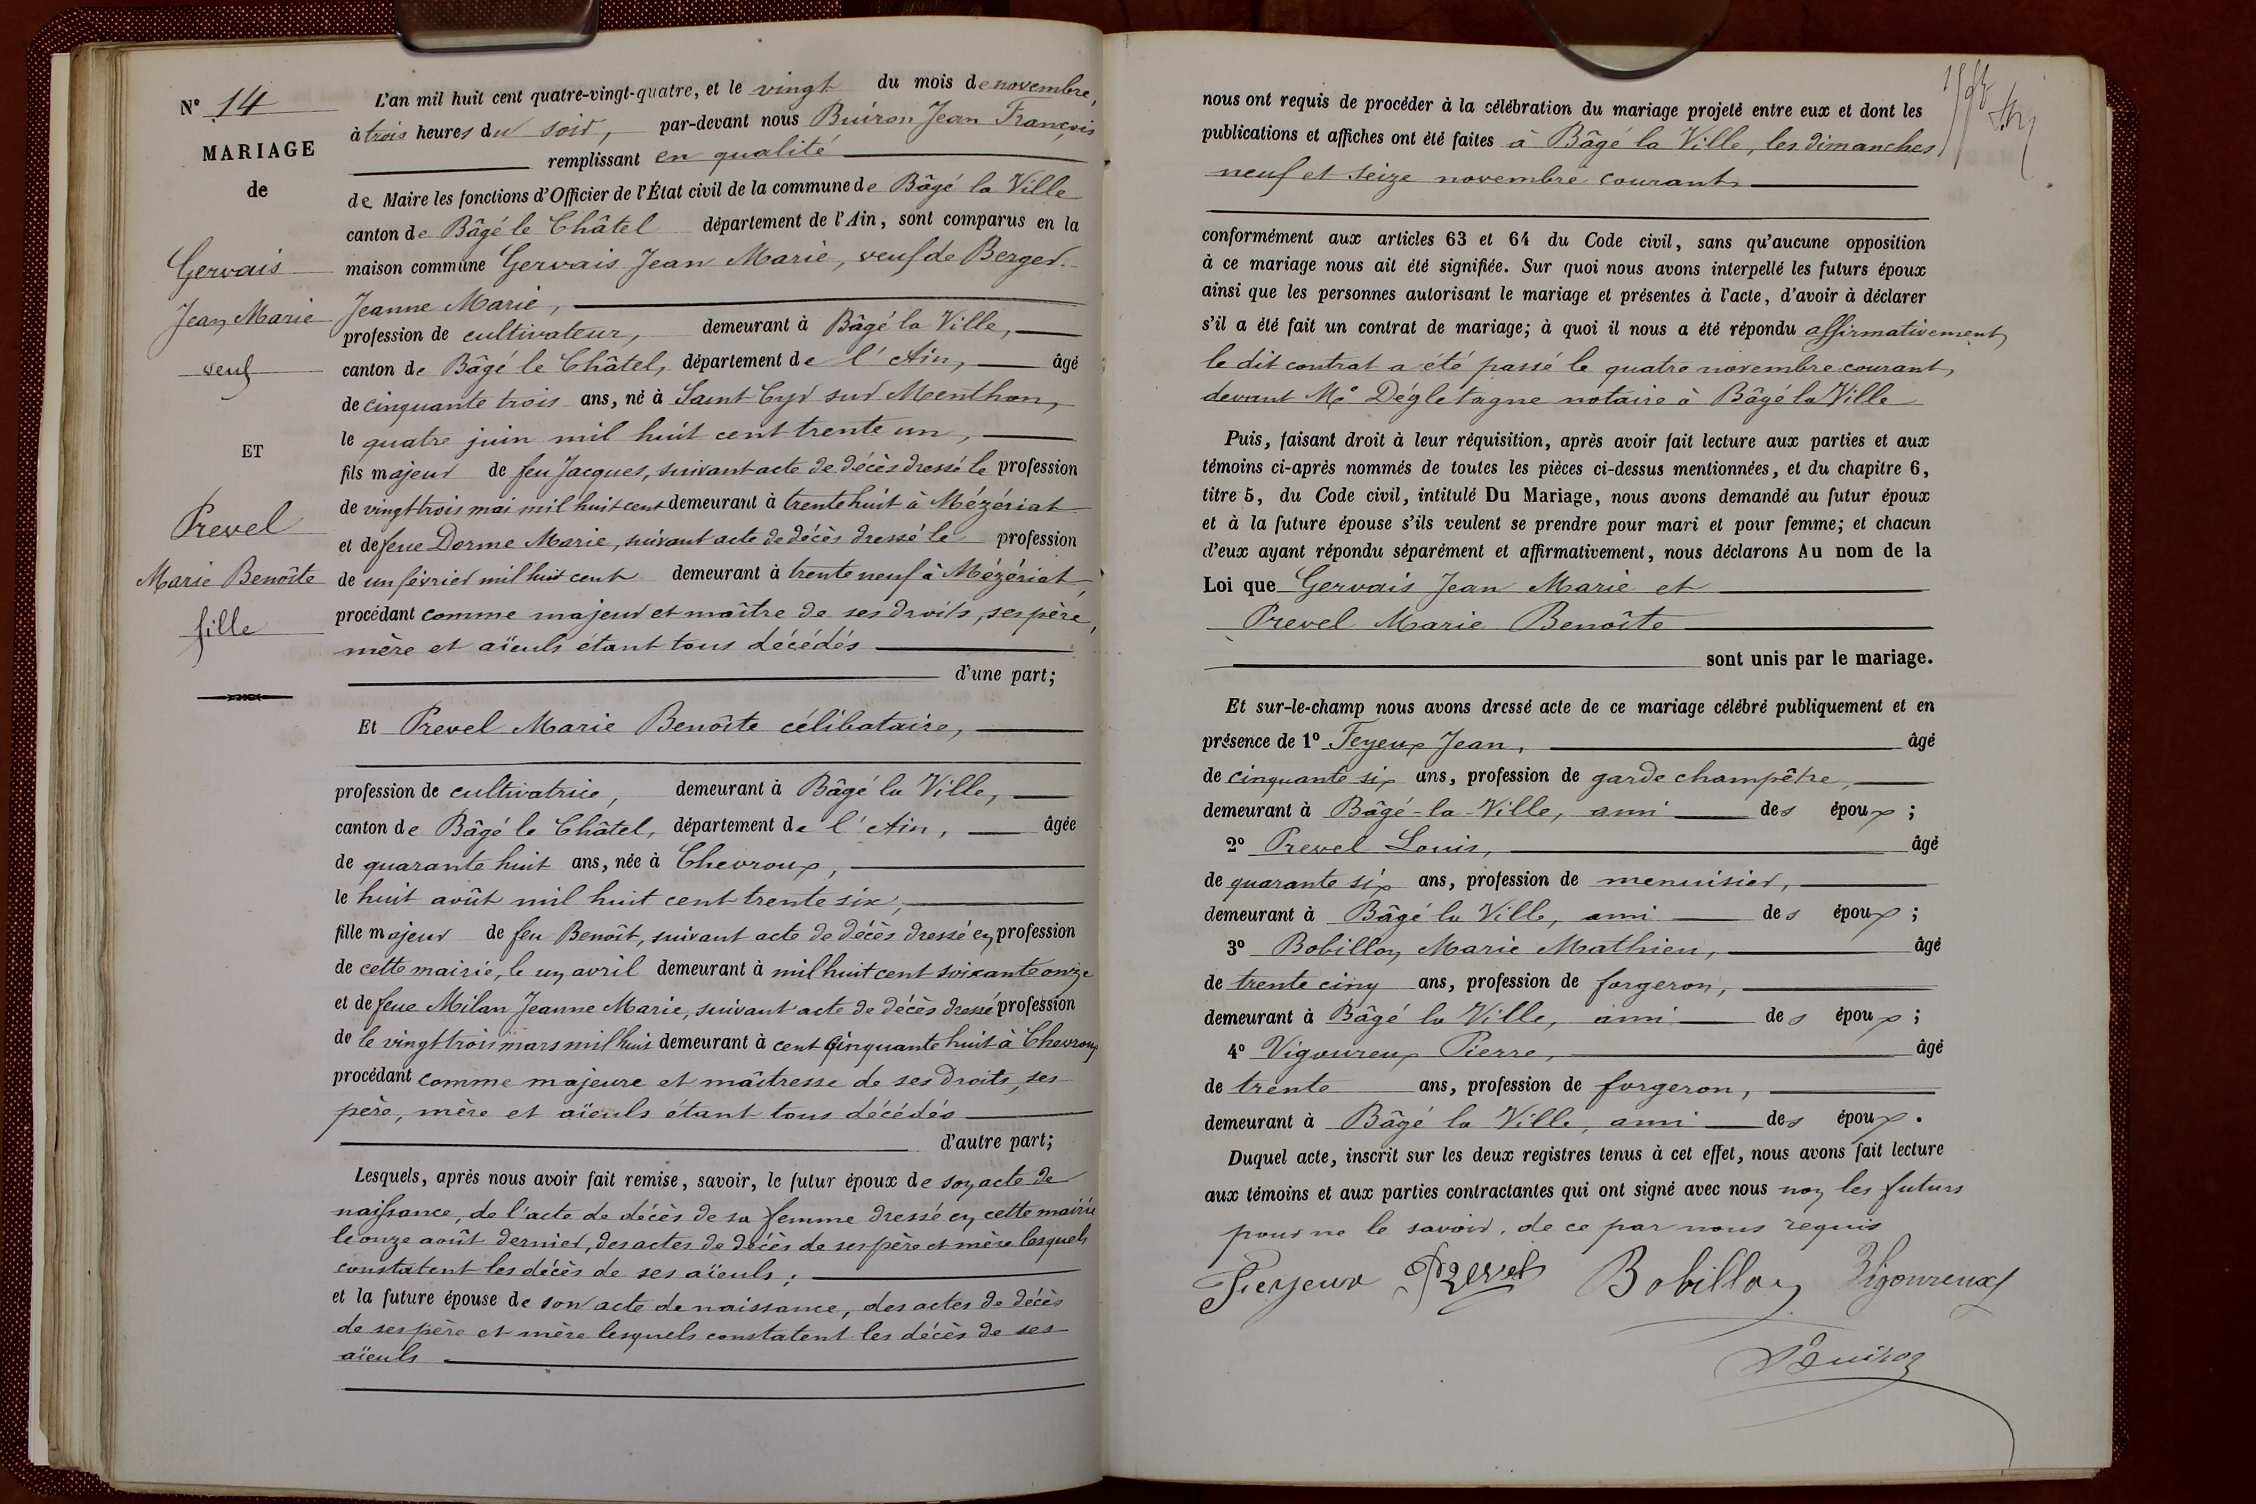 N° 14
MARIAGE
de
Gervais
Jean Marie
veuf
ET
Prevel
Marie Benoîte
fille
L'an mil huit cent quatre-vingt-quatre, et le vingt du mois de novembre,
à trois heures du soir, par-devant nous Buiron Jean François
remplissant en qualité
de Maire les fonctions d'Officier de l'État civil de la commune de Bâgé la Ville
canton de Bâgé le Châtel département de l'Ain, sont comparus en la
maison commune Gervais Jean Marie, veuf de Berger
Jeanne Marie,
profession de cultivateur, demeurant à Bâgé la Ville,
canton de Bâgé le Châtel, département de l'Ain, âgé
de cinquante trois ans, né à Saint Cyr sur Menthon,
le quatre juin mil huit cent trente un,
fils majeur de feu Jacques, suivant acte de décès dressé le profession
de vingt trois mai mil huit cent demeurant à trente huit à Mézériat
et de feue Dorme Marie, suivant acte de décès dressé le profession
de un février mil huit cent demeurant à trente neuf à Mézériat,
procédant comme majeur et maître de ses droits, ses père,
mère et aïeuls étant tous décédés
d'une part;
Et Prevel Marie Benoîte célibataire,
profession de cultivatrice, demeurant à Bâgé la Ville,
canton de Bâgé le Châtel, département de l'Ain, âgée
de quarante huit ans, née à Chevroux,
le huit août mil huit cent trente six,
fille majeur de feu Benoît, suivant acte de décès dressé en profession
de cette mairie, le un avril demeurant à mil huit cent soixante onze
et de feue Milan Jeanne Marie, suivant acte de décès dressé profession
de le vingt trois mars mil huit demeurant à cent cinquante huit à Chevroux
procédant comme majeure et maîtresse de ses droits, ses
père, mère et aïeuls étant tous décédés
d'autre part;
Lesquels, après nous avoir fait remise, savoir, le futur époux de son acte de
naissance, de l'acte de décès de sa femme dressé en cette mairie
le onze août dernier, des actes de décès de ses père et mère lesquels
constatent les décès de ses aïeuls;
et la future épouse de son acte de naissance, des actes de décès
de ses père et mère lesquels constatent les décès de ses
aïeuls
nous ont requis de procéder à la célébration du mariage projeté entre eux et dont les
publications et affiches ont été faites à Bâgé la Ville, les dimanches
neuf et seize novembre courant
conformément aux articles 63 et 64 du Code civil, sans qu'aucune opposition
à ce mariage nous ait été signifiée. Sur quoi nous avons interpellé les futurs époux
ainsi que les personnes autorisant le mariage et présentes à l'acte, d'avoir à déclarer
s'il a été fait un contrat de mariage; à quoi il nous a été répondu affirmativement,
le dit contrat a été passé le quatre novembre courant,
devant Me Dégletagne notaire à Bâgé la Ville
Puis, faisant droit à leur réquisition, après avoir fait lecture aux parties et aux
témoins ci-après nommés de toutes les pièces ci-dessus mentionnées, et du chapitre 6,
titre 5, du Code civil, intitulé Du Mariage, nous avons demandé au futur époux
et à la future épouse s'ils veulent se prendre pour mari et pour femme; et chacun
d'eux ayant répondu séparément et affirmativement, nous déclarons Au nom de la
Loi que Gervais Jean Marie et
Prevel Marie Benoîte
sont unis par le mariage.
Et sur-le-champ nous avons dressé acte de ce mariage célébré publiquement et en
présence de 1° Feyeux Jean, âgé
de cinquante six ans, profession de garde champêtre,
demeurant à Bâgé-la-Ville, ami des époux;
2° Prevel Louis, âgé
de quarante six ans, profession de menuisier,
demeurant à Bâgé la Ville, ami des époux;
3° Bobillon Marie Mathieu, âgé
de trente cinq ans, profession de forgeron,
demeurant à Bâgé la Ville, ami des époux;
4° Vigoureux Pierre, âgé
de trente ans, profession de forgeron,
demeurant à Bâgé la Ville, ami des époux.
Duquel acte, inscrit sur les deux registres tenus à cet effet, nous avons fait lecture
aux témoins et aux parties contractantes qui ont signé avec nous non les futurs
pour ne le savoir, de ce par nous requis
Fieyeux Prevel Bobillon Vigoureux
Buiron